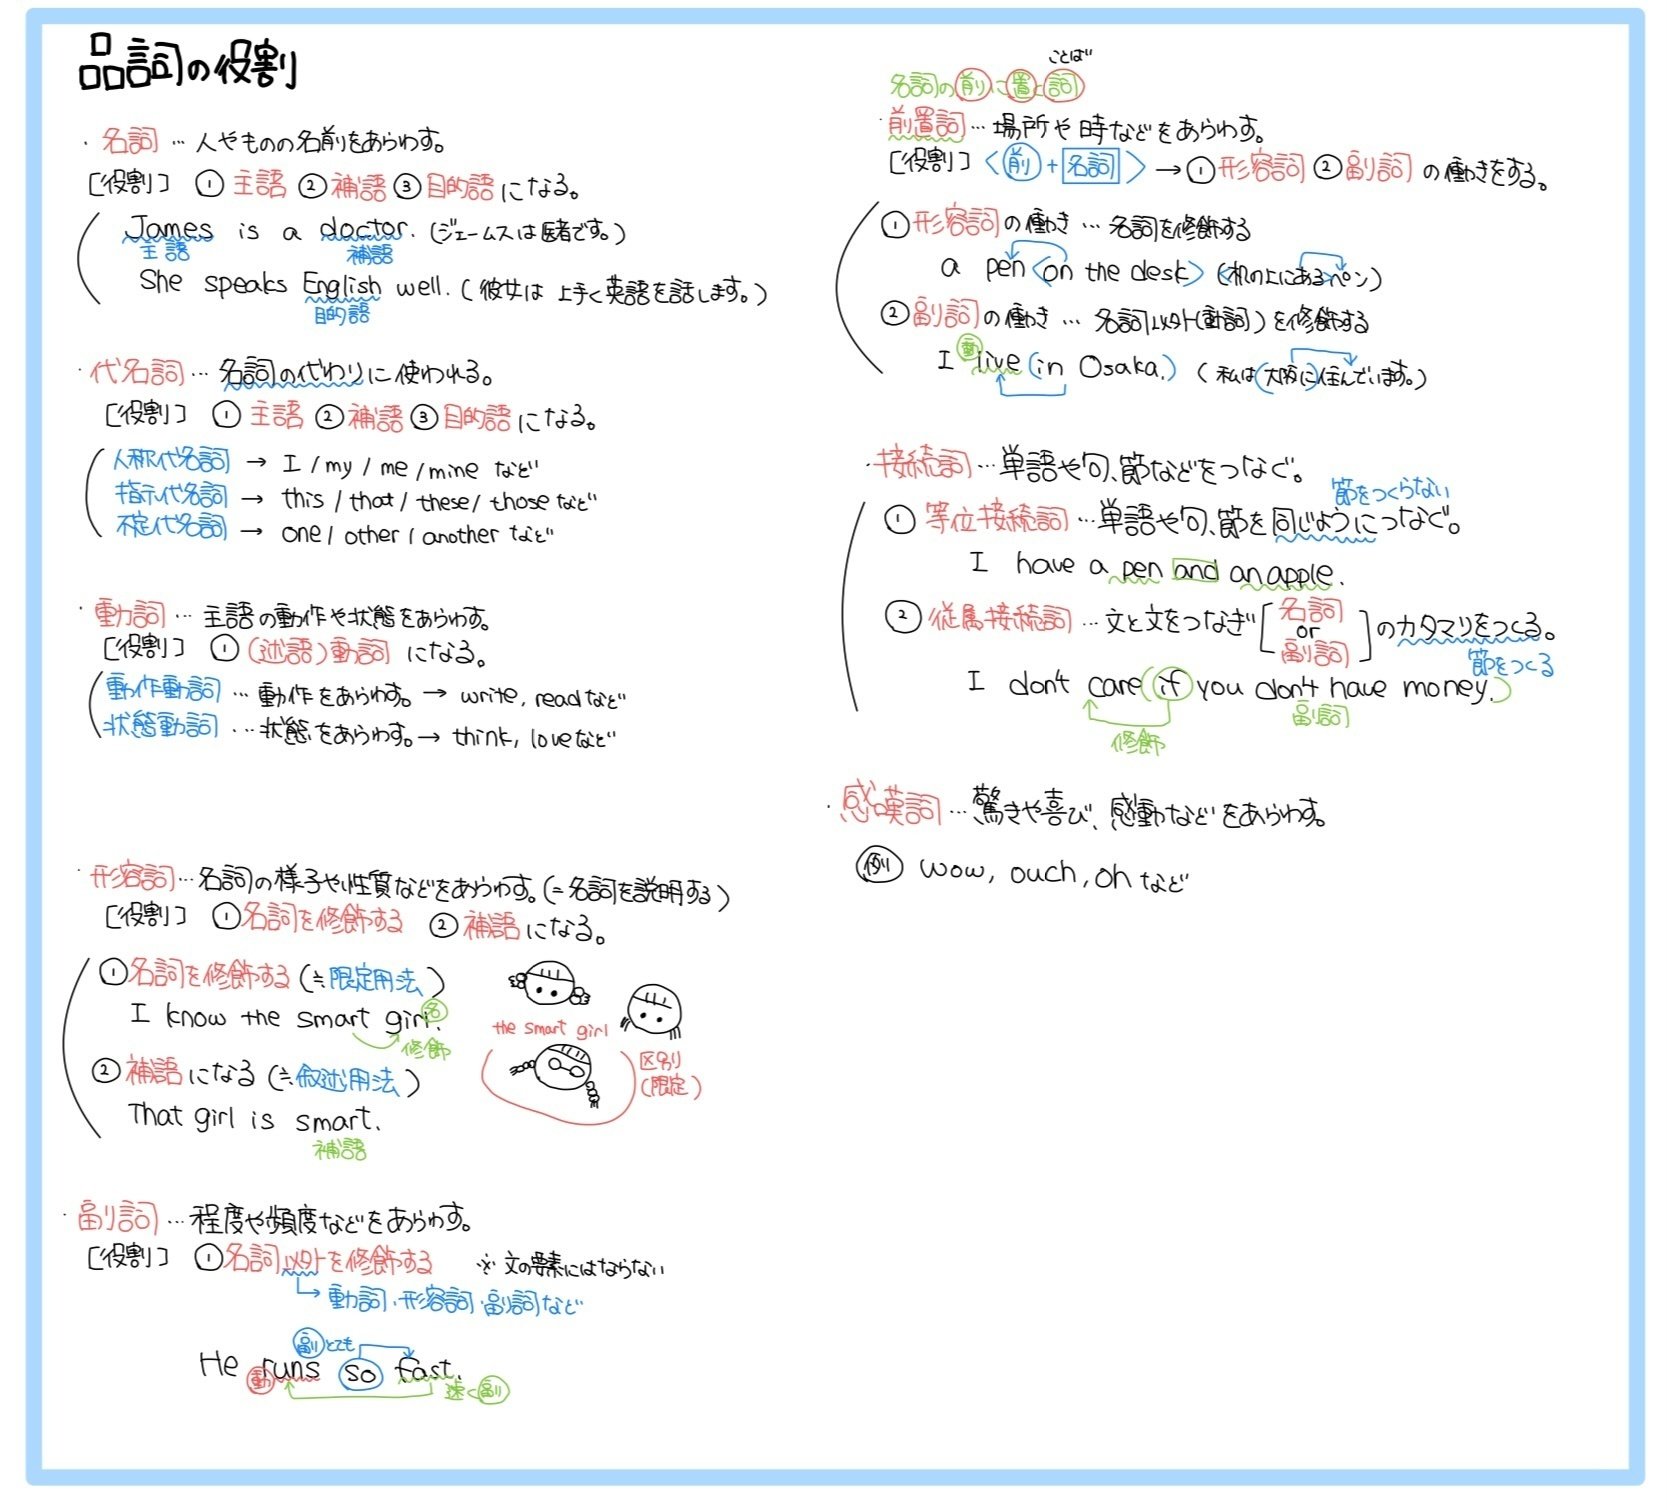 品詞の役割
・名詞…人やものの名前をあらわす。
[役割] ①主語 ②補語 ③目的語になる。
James is a doctor. (ジェームスは医者です。)
主語 補語
She speaks English well. (彼女は上手く英語を話します。)
目的語
・代名詞…名詞の代わりに使われる。
[役割] ①主語 ②補語 ③目的語になる。
人称代名詞 → I / my / me / mine など
指示代名詞 → this / that / these / those など
不定代名詞 → one / other / another など
・動詞…主語の動作や状態をあらわす。
[役割] ①(述語)動詞 になる。
動作動詞…動作をあらわす。→ write, readなど
状態動詞…状態をあらわす。→ think, loveなど
・形容詞…名詞の様子や性質などをあらわす。(=名詞を説明する)
[役割] ①名詞を修飾する ②補語になる。
①名詞を修飾する (≒限定用法)
I know the smart girl. 名
修飾
the smart girl
区別
(限定)
②補語になる (≒叙述用法)
That girl is smart.
補語
・副詞…程度や頻度などをあらわす。
[役割] ①名詞以外を修飾する ※文の要素にはならない
→動詞、形容詞、副詞など
副 とても
He runs so fast.
動 速く 副
ことば
名詞の前に置く詞
・前置詞…場所や時などをあらわす。
[役割] 〈前+名詞〉→①形容詞 ②副詞 の働きをする。
①形容詞の働き…名詞を修飾する
a pen 〈on the desk〉 (〈机の上にある〉ペン)
②副詞の働き…名詞以外(動詞)を修飾する
動
I live (in Osaka.) (私は(大阪に)住んでいます。)
・接続詞…単語や句、節などをつなぐ。
節をつくらない
①等位接続詞…単語や句、節を同じようにつなぐ。
I have a pen and an apple.
②従属接続詞…文と文をつなぎ[名詞 or 副詞]のカタマリをつくる。
節をつくる
I don't care (if you don't have money.)
副詞
修飾
・感嘆詞…驚きや喜び、感動などをあらわす。
例 wow, ouch, oh など